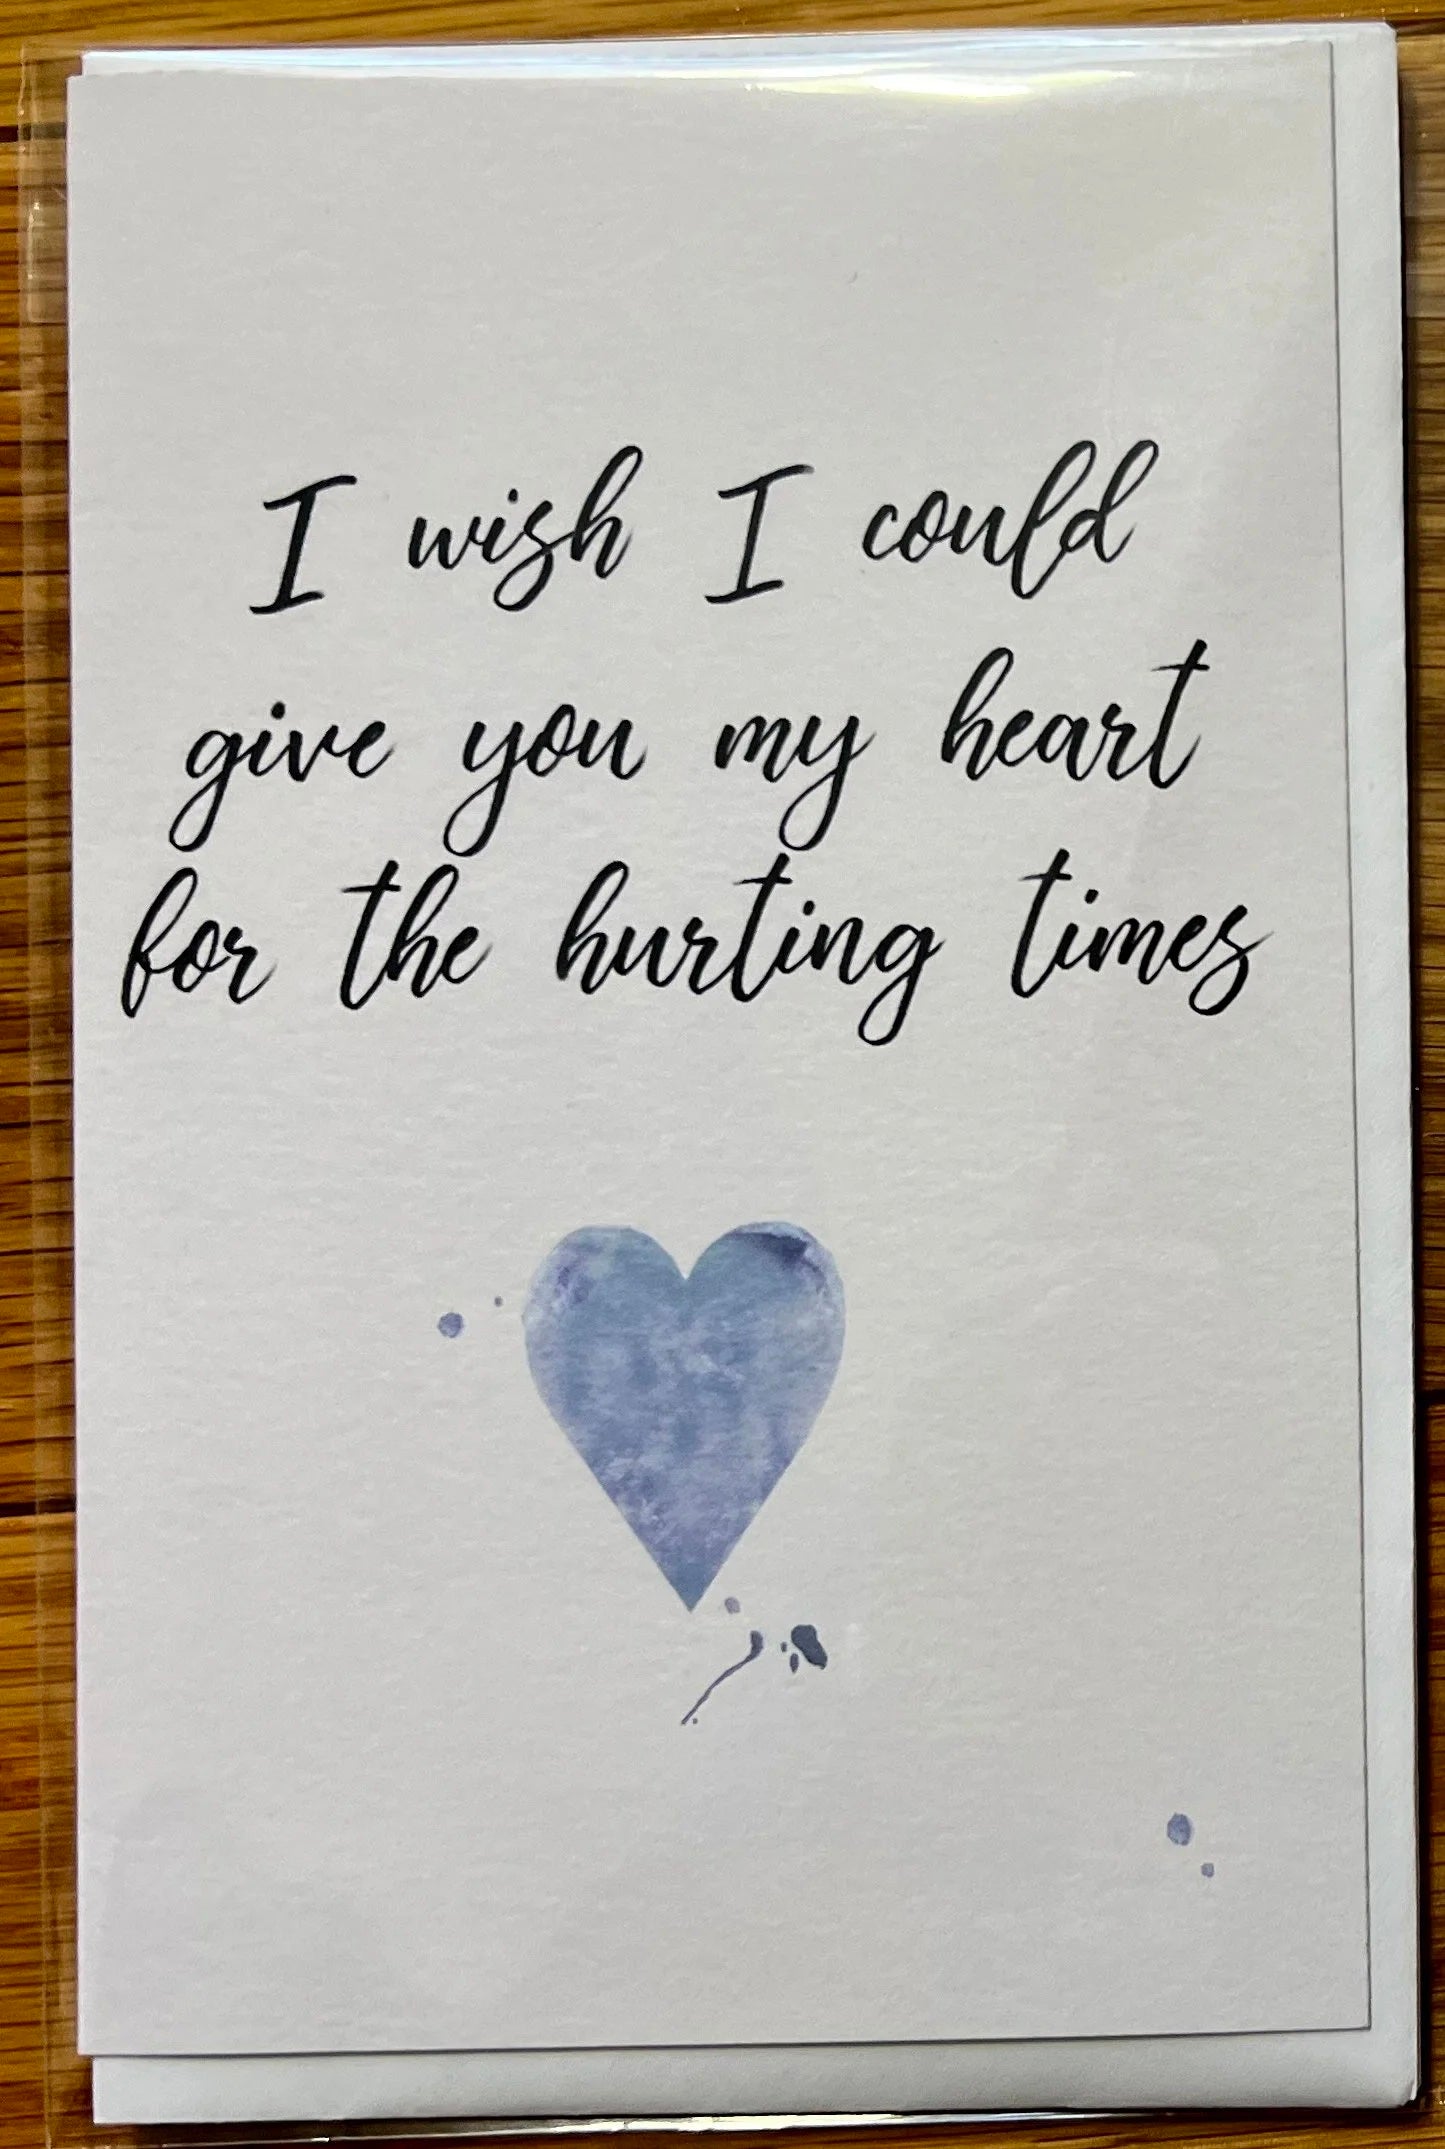 I wish I could
give you my heart
for the hurting times